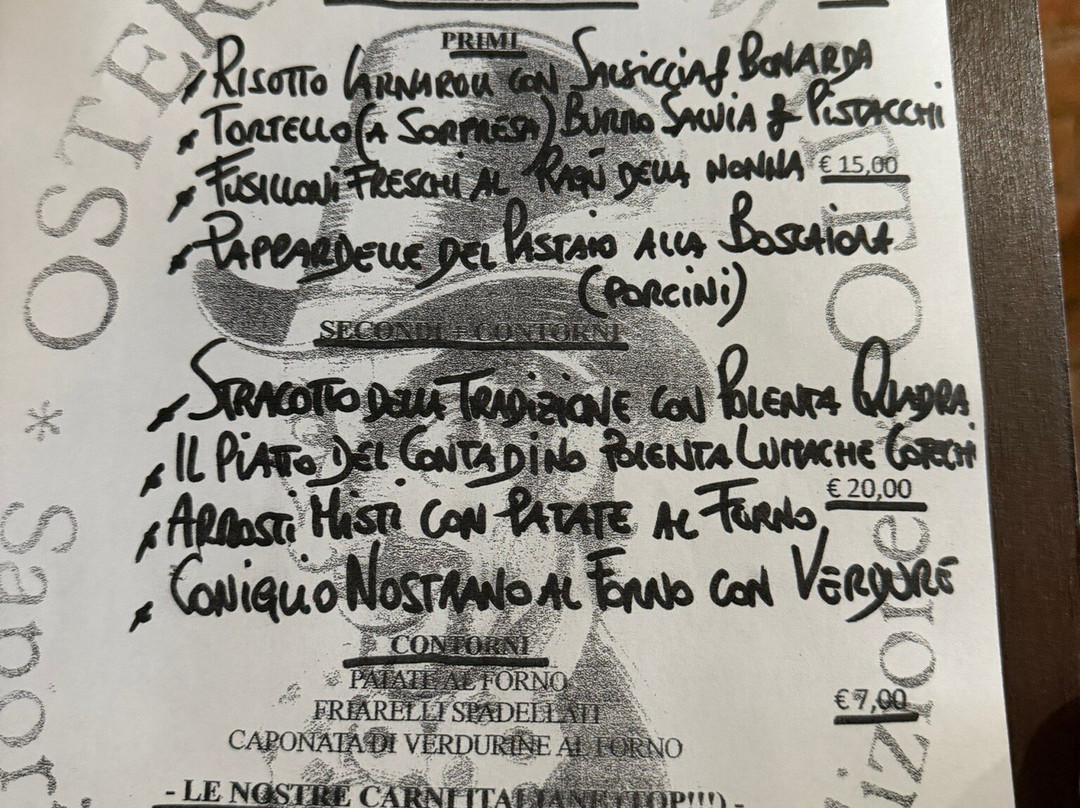 PRIMI
RISOTTO CARNAROLI CON SALSICCIA & BONARDA
TORTELLO (A SORPRESA) BURRO SALVIA & PISTACCHI
FUSILLONI FRESCHI AL RAGÙ DELLA NONNA € 15,00
PAPPARDELLE DEL PASTAIO ALLA BOSCAIOLA
(PORCINI)
SECONDI + CONTORNI
STRACOTTO DELLA TRADIZIONE CON POLENTA QUADRA
IL PIATTO DEL CONTADINO POLENTA LUMACHE COTECHI
€ 20,00
ARROSTI MISTI CON PATATE AL FORNO
CONIGLIO NOSTRANO AL FORNO CON VERDURE
CONTORNI
PATATE AL FORNO
FRIARELLI SPADELLATI € 7,00
CAPONATA DI VERDURINE AL FORNO
- LE NOSTRE CARNI ITALIANE (TOP!!!) -
OSTER
* Sapo